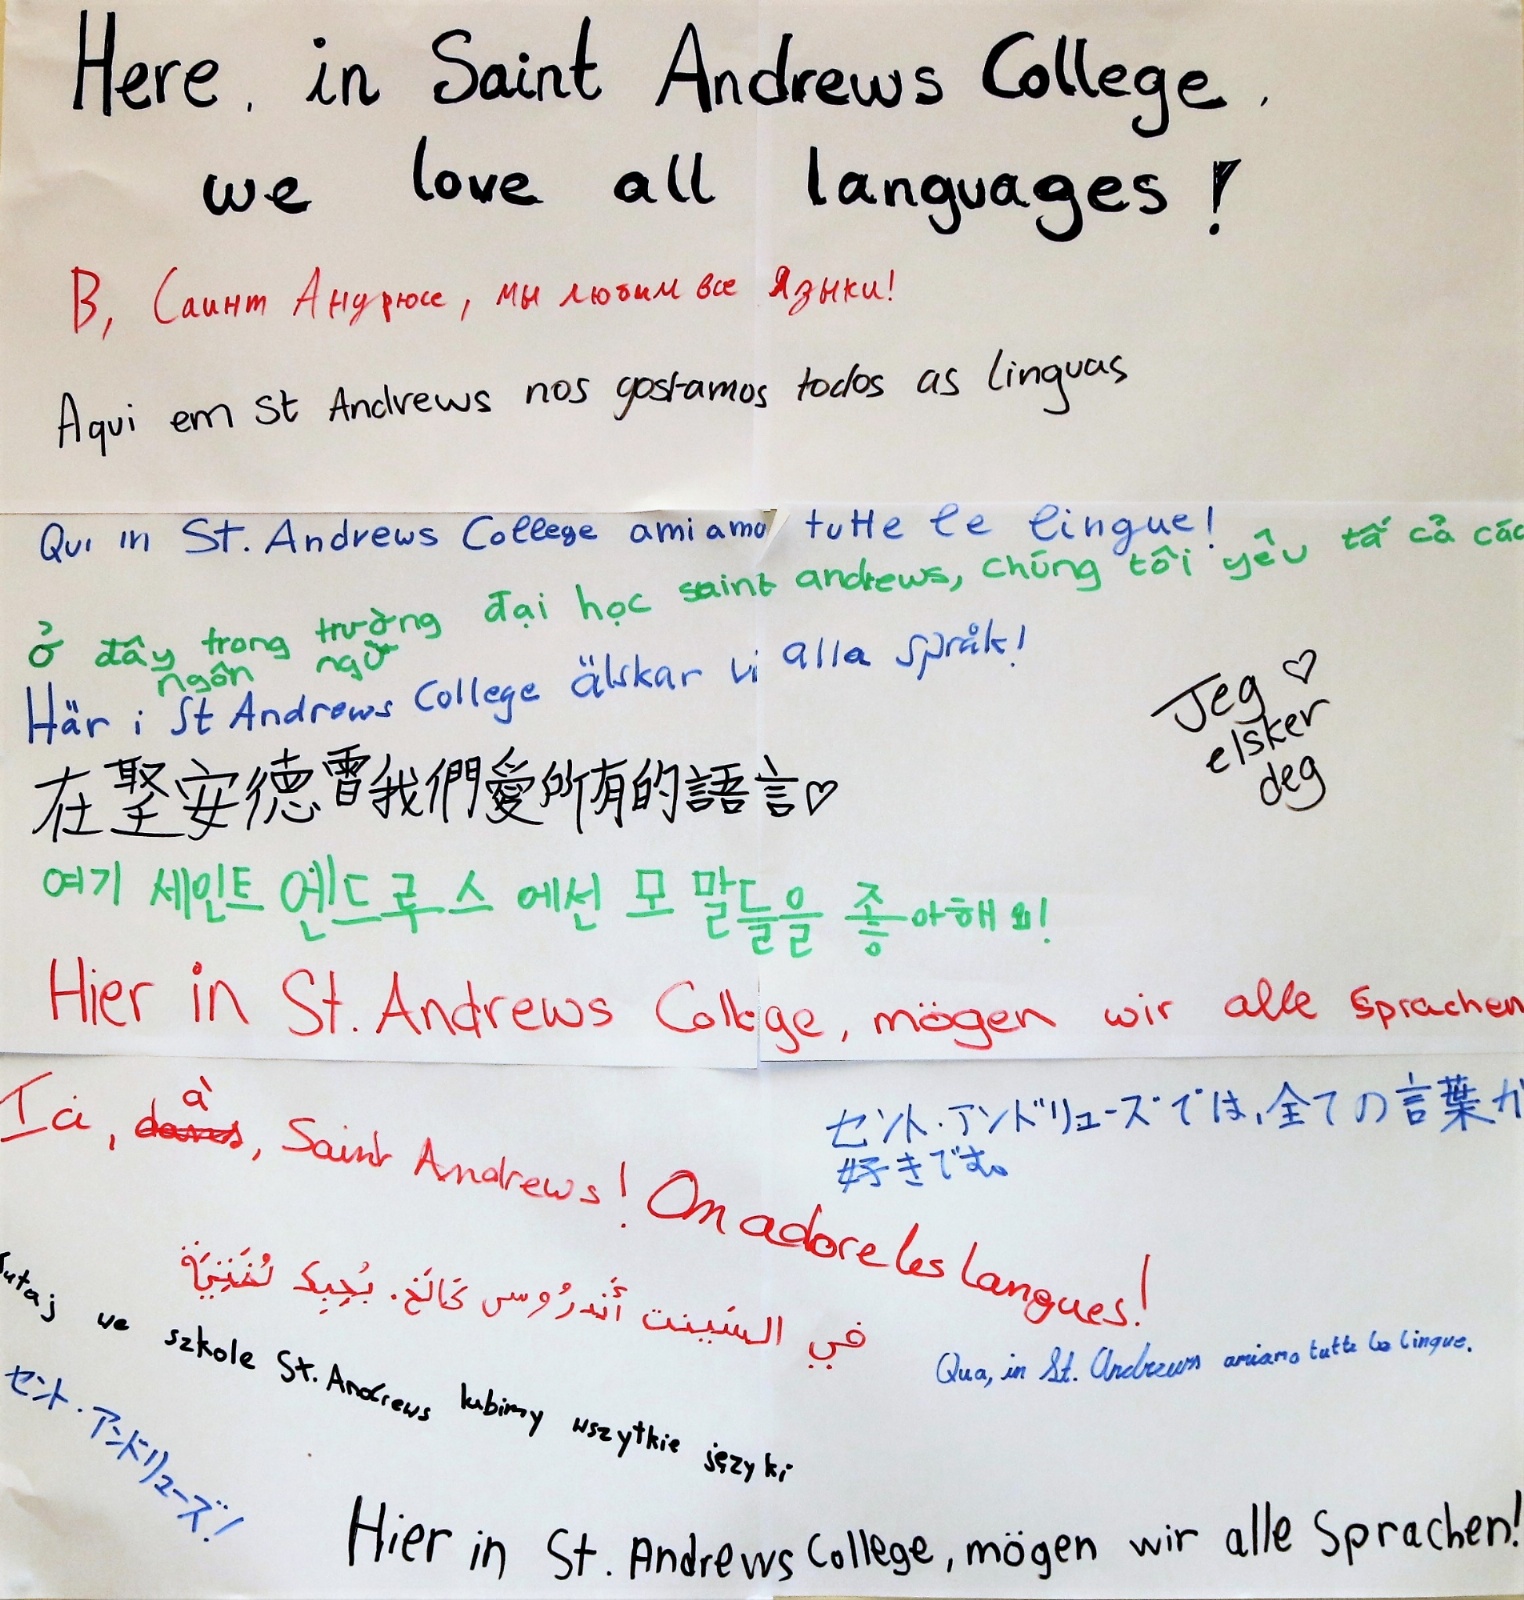 Here, in Saint Andrews College,
we love all languages!
В, Саинт Андрюсе, мы любим все языки!
Aqui em St Andrews nos gostamos todos as linguas
Qui in St. Andrews College amiamo tutte le lingue!
ở đây trong trường đại học saint andrews, chúng tôi yêu tấ cả các
ngôn ngữ
Här i St Andrews College älskar vi alla språk!
Jeg ♡
elsker
deg
在堅安德雷我們愛所有的語言♡
여기 세인트 엔드루스 에선 모 말들을 좋아해요!
Hier in St. Andrews College, mögen wir alle Sprachen
à
Ici, dans, Saint Andrews! On adore les langues!
セント・アンドリューズでは、全ての言葉が
好きです。
في السينت أندرُوس
Tutaj we szkole St. Andrews lubimy wszytkie języki
Qua, in St. Andrews amiamo tutte le lingue.
セント・アンドリューズ!
Hier in St. Andrews College, mögen wir alle Sprachen!